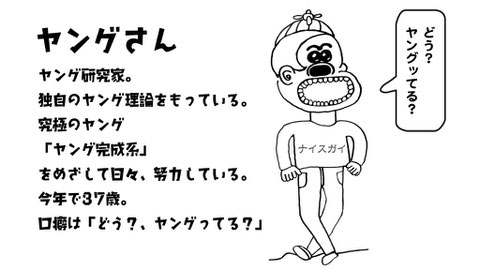 ヤングさん
ヤング研究家。
独自のヤング理論をもっている。
究極のヤング
「ヤング完成系」
をめざして日々、努力している。
今年で37歳。
口癖は「どう?、ヤングってる?」
どう?
ヤングッてる?
ナイスガイ